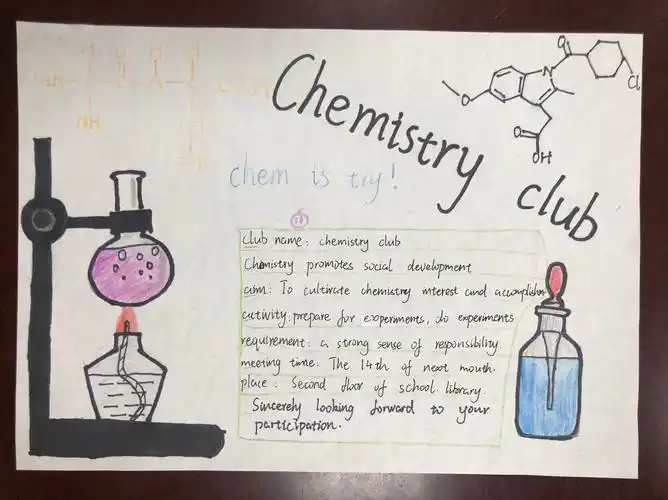 Chemistry club
chem is try!
club name: chemistry club
Chemistry promotes social development
aim: To cultivate chemistry interest and accomplishm
activity: prepare for experiments, do experiments
requirement: a strong sense of responsibility.
meeting time: The 14th of next mouth.
place: Second floor of school library.
Sincerely looking forward to your
participation.
O
N
O
Cl
O
OH
NH₂